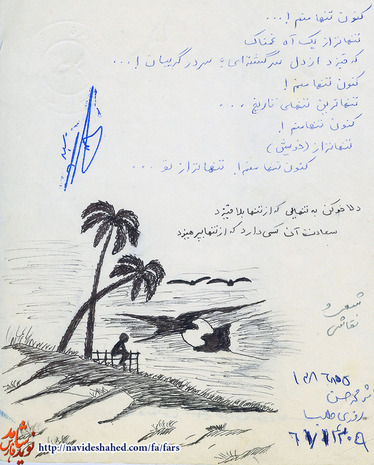 کنون تنها منم !...
تنهاتر از یک آه غمناک
که خیزد از دل سرگشته‌ای به سر در گریبان !...
کنون تنها منم !
تنهاترین تنهای تاریخ ...
کنون تنها منم !
تنهاتر از (خویش)
کنون تنها منم ! تنهاتر از تو ...
دلا خو کن به تنهایی که از تنها بلا خیزد
سعادت آن کسی دارد که از تنها بپرهیزد
شعر و
نقاشی
http://navideshahed.com/fa/fars